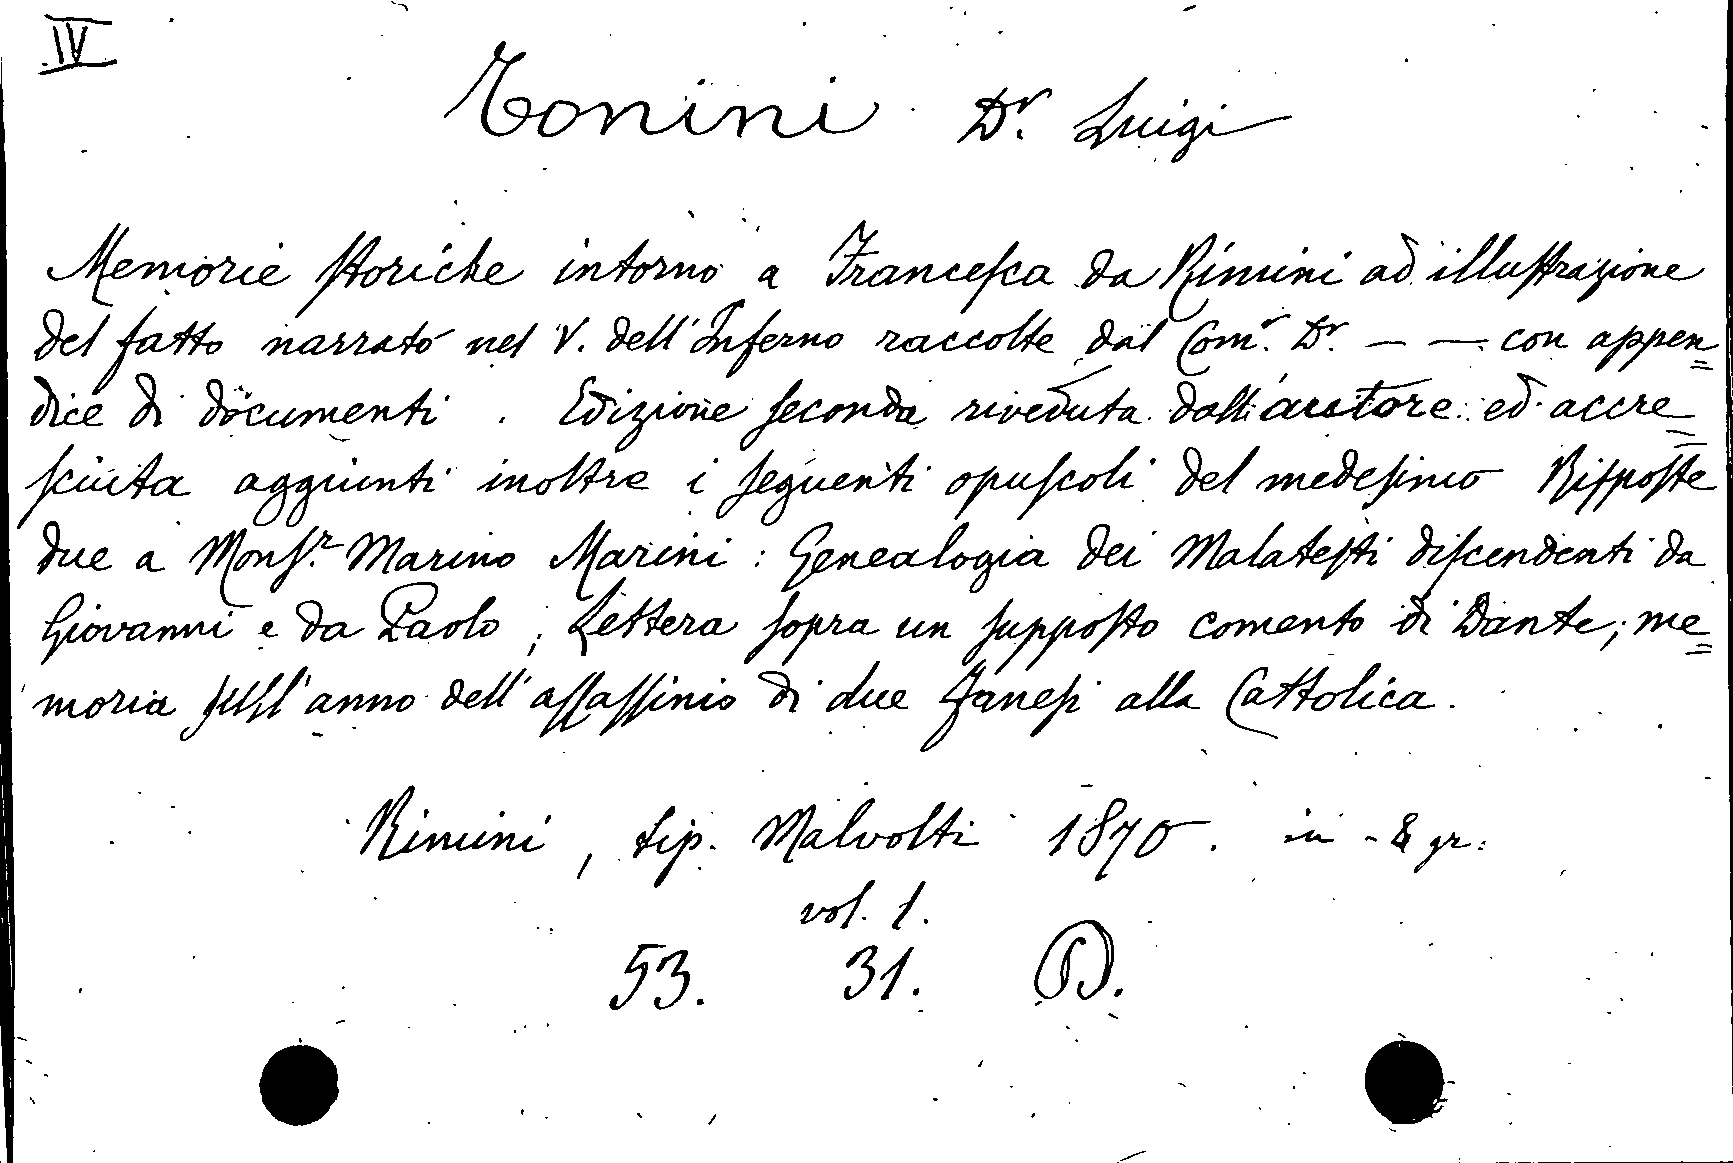 IV
Tonini Dr. Luigi
Memorie storiche intorno a Francesca da Rimini ad illustrazione
del fatto narrato nel V. dell'Inferno raccolte dal Comr. Dr. — — con appen=
dice di documenti . Edizione seconda riveduta dall'autore ed accre=
sciuta aggiunti inoltre i seguenti opuscoli del medesimo Risposte
due a Monsr. Marino Marini : Genealogia dei Malatesti discendenti da
Giovanni e da Paolo ; Lettera sopra un supposto comento di Dante ; me=
moria sull'anno dell'assassinio di due Fanesi alla Cattolica.
Rimini , tip. Malvolti 1870. in - 8 gr.
vol. 1.
53. 31. D.